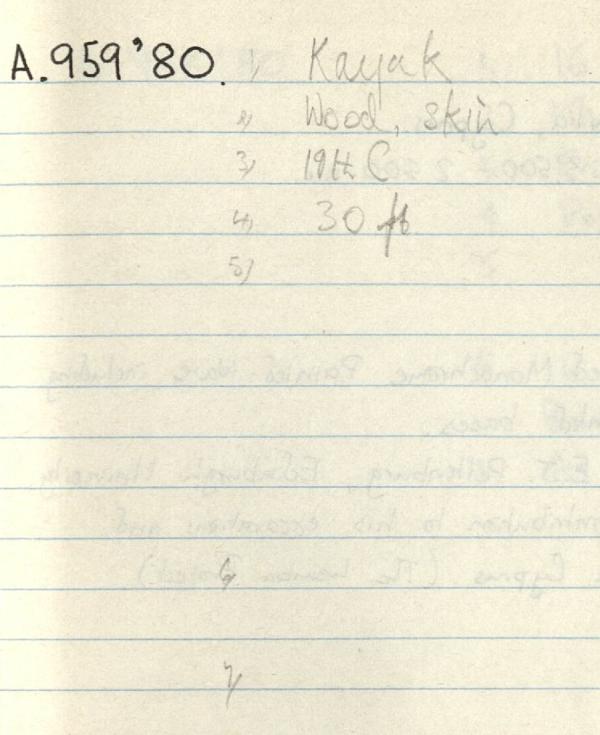 A.959'80. 1) Kayak
2) Wood, skin
3) 19th C
4) 30 ft
5)
6)
7)